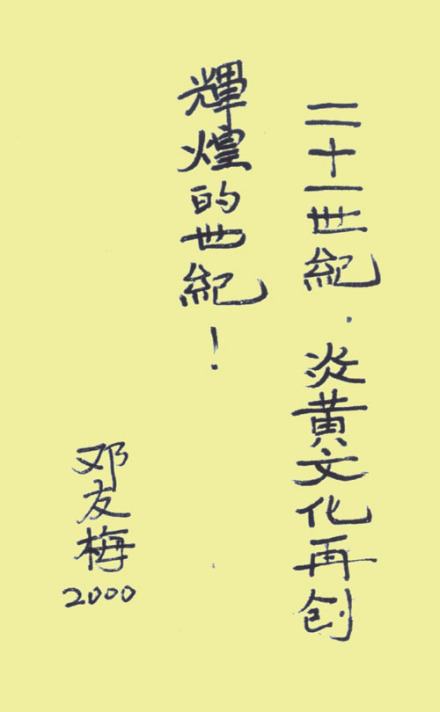 二十一世紀．炎黄文化再创
輝煌的世紀！
邓友梅
2000